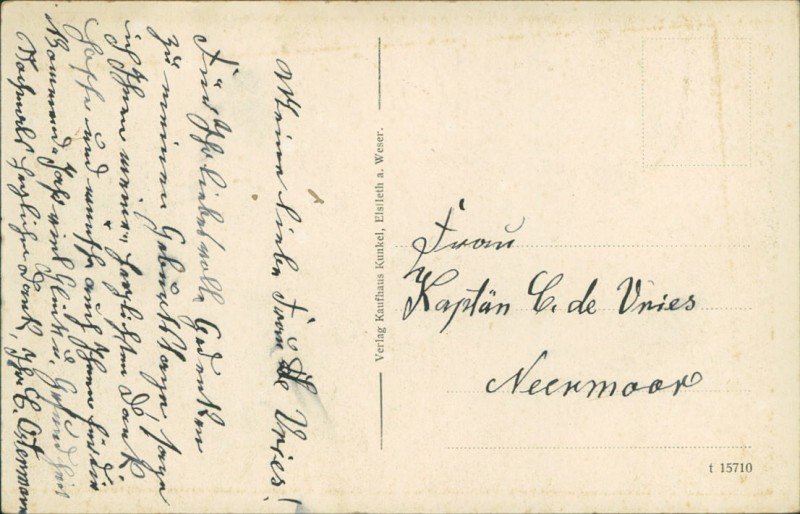 Meine liebe Frau de Vries!
Für Ihr liebevolles Gedenken
zu meinem Geburtstage, sage
ich Ihnen meinen herzlichsten Dank
hoffe und wünsche auch Ihnen für die
kommend. Jahr viel Glück u. Gesundheit
Nochmals herzlichen Dank, Ihr C. Ostermann
Verlag Kaufhaus Kunkel, Elsfleth a. Weser.
Frau
Kaptän C. de Vries
Neermoor
t 15710